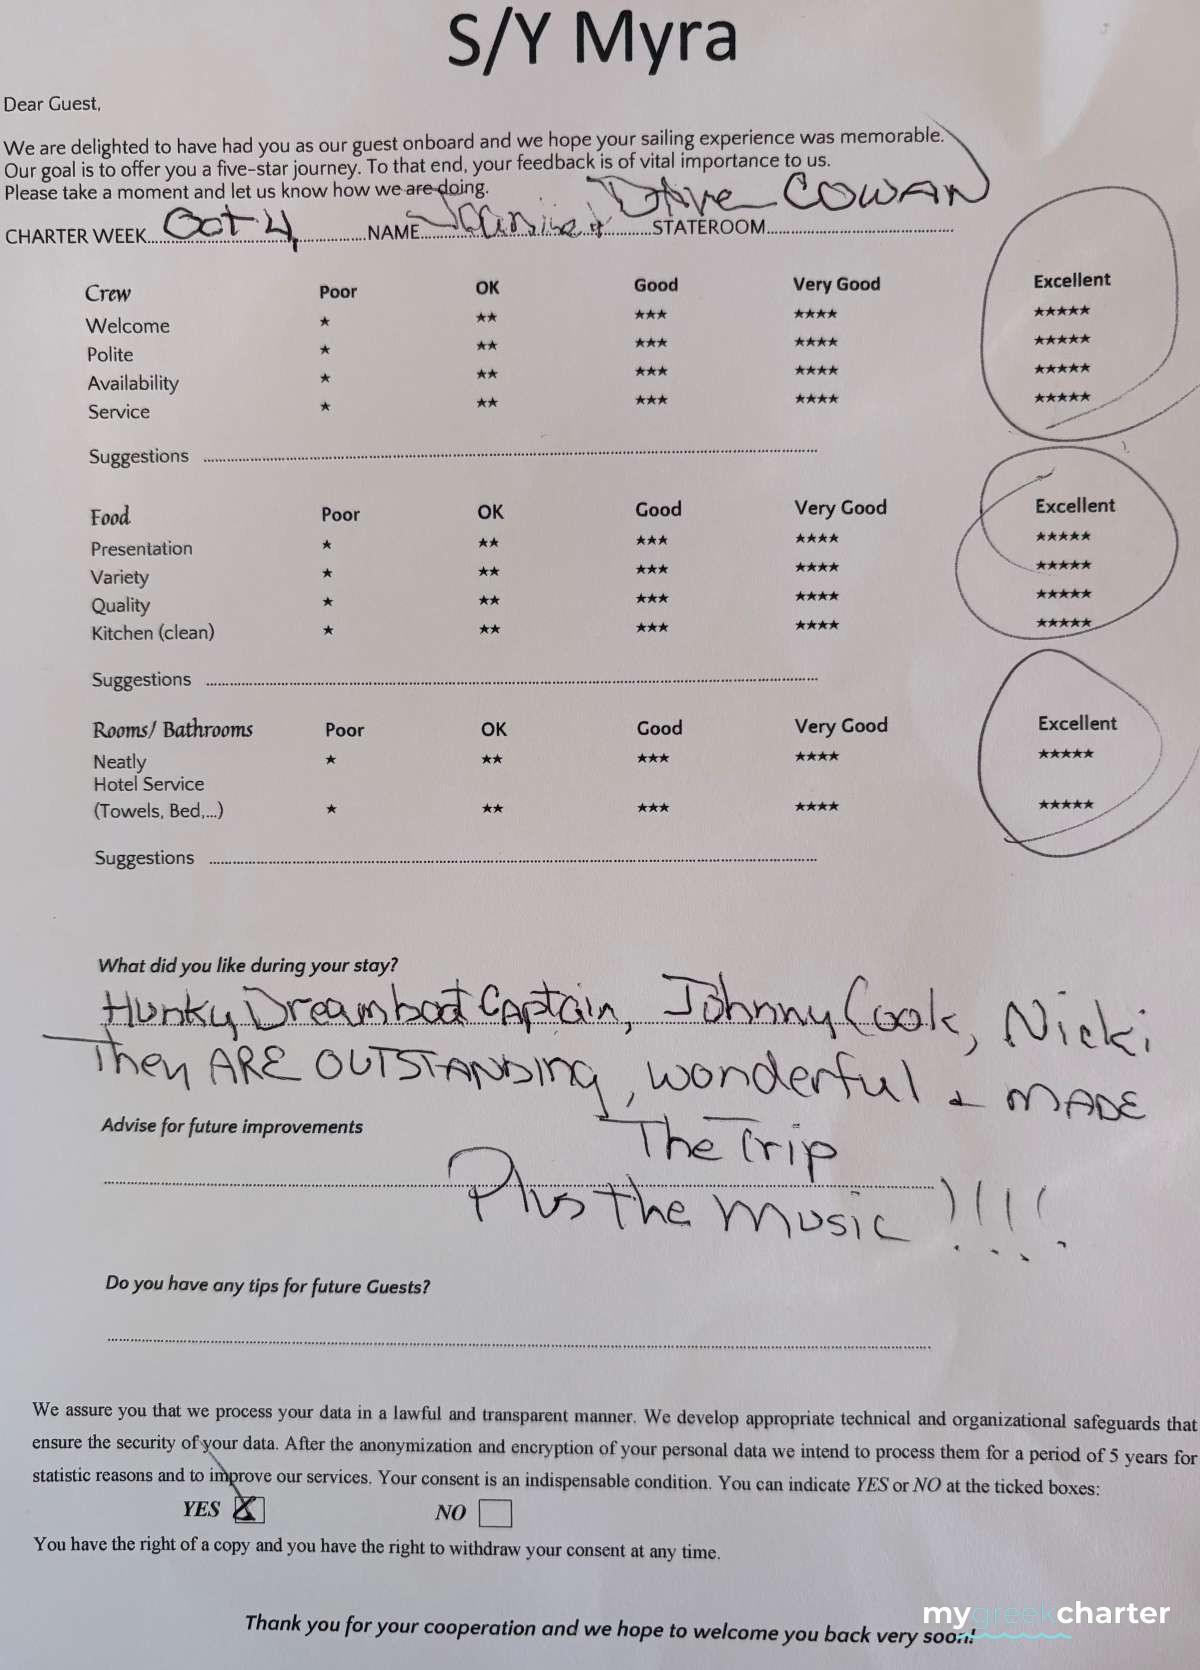 S/Y Myra
Dear Guest,
We are delighted to have had you as our guest onboard and we hope your sailing experience was memorable.
Our goal is to offer you a five-star journey. To that end, your feedback is of vital importance to us.
Please take a moment and let us know how we are doing.
CHARTER WEEK Oct 4 NAME & Dave COWAN STATEROOM
Crew Poor OK Good Very Good Excellent
Welcome ★ ★★ ★★★ ★★★★ ★★★★★
Polite ★ ★★ ★★★ ★★★★ ★★★★★
Availability ★ ★★ ★★★ ★★★★ ★★★★★
Service ★ ★★ ★★★ ★★★★ ★★★★★
Suggestions
Food Poor OK Good Very Good Excellent
Presentation ★ ★★ ★★★ ★★★★ ★★★★★
Variety ★ ★★ ★★★ ★★★★ ★★★★★
Quality ★ ★★ ★★★ ★★★★ ★★★★★
Kitchen (clean) ★ ★★ ★★★ ★★★★ ★★★★★
Suggestions
Rooms/ Bathrooms Poor OK Good Very Good Excellent
Neatly ★ ★★ ★★★ ★★★★ ★★★★★
Hotel Service
(Towels, Bed,...) ★ ★★ ★★★ ★★★★ ★★★★★
Suggestions
What did you like during your stay?
Hunky Dreamboat Captain, Johnny Cook, Nicki
They ARE OUTSTANDING, wonderful & MADE
Advise for future improvements
The Trip
Plus the music !!!!
Do you have any tips for future Guests?
We assure you that we process your data in a lawful and transparent manner. We develop appropriate technical and organizational safeguards that
ensure the security of your data. After the anonymization and encryption of your personal data we intend to process them for a period of 5 years for
statistic reasons and to improve our services. Your consent is an indispensable condition. You can indicate YES or NO at the ticked boxes:
YES X NO
You have the right of a copy and you have the right to withdraw your consent at any time.
mygreekcharter
Thank you for your cooperation and we hope to welcome you back very soon!